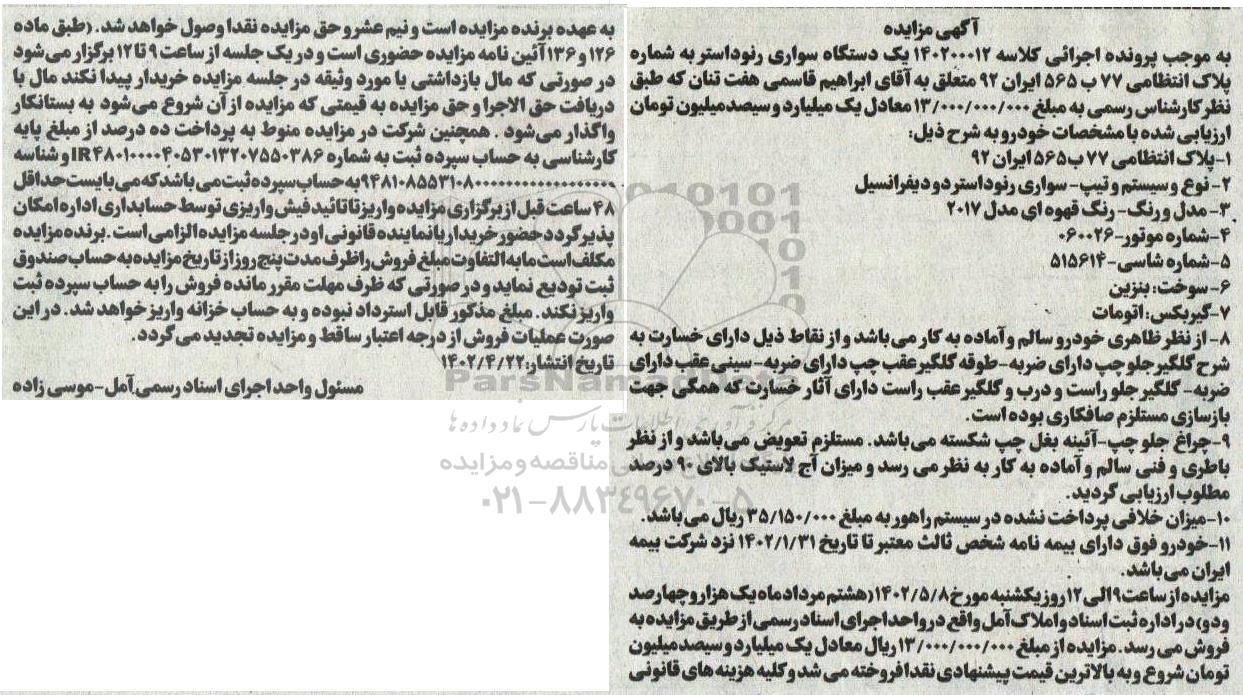 آگهی مزایده
به موجب پرونده اجرائی کلاسه ۱۴۰۲۰۰۰۱۲ یک دستگاه سواری رنوداستر به شماره
پلاک انتظامی ۷۷ ب ۵۶۵ ایران ۹۲ متعلق به آقای ابراهیم قاسمی هفت تنان که طبق
نظر کارشناس رسمی به مبلغ ۱۳/۰۰۰/۰۰۰/۰۰۰ معادل یک میلیارد و سیصد میلیون تومان
ارزیابی شده با مشخصات خودرو به شرح ذیل:
۱-پلاک انتظامی ۷۷ ب ۵۶۵ ایران ۹۲
۲- نوع و سیستم و تیپ- سواری رنوداستر دو دیفرانسیل
۳- مدل و رنگ- رنگ قهوه ای مدل ۲۰۱۷
۴-شماره موتور-۰۶۰۰۲۶
۵-شماره شاسی-۵۱۵۶۱۴
۶-سوخت: بنزین
۷-گیربکس: اتومات
۸- از نظر ظاهری خودرو سالم و آماده به کار می باشد و از نقاط ذیل دارای خسارت به
شرح گلگیر جلو چپ دارای ضربه-طوقه گلگیر عقب چپ دارای ضربه- سینی عقب دارای
ضربه- گلگیر جلو راست و درب و گلگیر عقب راست دارای آثار خسارت که همگی جهت
بازسازی مستلزم صافکاری بوده است.
۹-چراغ جلو چپ-آئینه بغل چپ شکسته می باشد. مستلزم تعویض می باشد و از نظر
باطری و فنی سالم و آماده به کار به نظر می رسد و میزان آج لاستیک بالای ۹۰ درصد
مطلوب ارزیابی گردید.
۱۰-میزان خلافی پرداخت نشده در سیستم راهور به مبلغ ۳۵/۱۵۰/۰۰۰ ریال می باشد.
۱۱-خودرو فوق دارای بیمه نامه شخص ثالث معتبر تا تاریخ ۱۴۰۲/۱/۳۱ نزد شرکت بیمه
ایران می باشد.
مزایده از ساعت ۹ الی ۱۲ روز یکشنبه مورخ ۱۴۰۲/۵/۸ (هشتم مرداد ماه یک هزار و چهارصد
ودو) در اداره ثبت اسناد و املاک آمل واقع در واحد اجرای اسناد رسمی از طریق مزایده به
فروش می رسد. مزایده از مبلغ ۱۳/۰۰۰/۰۰۰/۰۰۰ ریال معادل یک میلیارد و سیصد میلیون
تومان شروع و به بالاترین قیمت پیشنهادی نقدا فروخته می شد و کلیه هزینه های قانونی
به عهده برنده مزایده است و نیم عشر و حق مزایده نقدا وصول خواهد شد. (طبق ماده
۱۲۶ و ۱۳۶ آئین نامه مزایده حضوری است و در یک جلسه از ساعت ۹ تا ۱۲ برگزار می شود
در صورتی که مال بازداشتی یا مورد وثیقه در جلسه مزایده خریدار پیدا نکند مال با
دریافت حق الاجرا و حق مزایده به قیمتی که مزایده از آن شروع می شود به بستانکار
واگذار می شود . همچنین شرکت در مزایده منوط به پرداخت ده درصد از مبلغ پایه
کارشناسی به حساب سپرده ثبت به شماره IR۴۸۰۱۰۰۰۰۴۰۵۳۰۱۳۲۰۷۵۵۰۳۸۶ و شناسه
به حساب سپرده ثبت می باشد که می بایست حداقل
۴۸ ساعت قبل از برگزاری مزایده واریز تا تائید فیش واریزی توسط حسابداری اداره امکان
پذیر گردد حضور خریدار یا نماینده قانونی او در جلسه مزایده الزامی است. برنده مزایده
مکلف است مابه التفاوت مبلغ فروش را ظرف مدت پنج روز از تاریخ مزایده به حساب صندوق
ثبت تودیع نماید و در صورتی که ظرف مهلت مقرر مانده فروش را به حساب سپرده ثبت
واریز نکند. مبلغ مذکور قابل استرداد نبوده و به حساب خزانه واریز خواهد شد. در این
صورت عملیات فروش از درجه اعتبار ساقط و مزایده تجدید می گردد.
تاریخ انتشار: ۱۴۰۲/۴/۲۲
مسئول واحد اجرای اسناد رسمی آمل-موسی زاده
مرکز فرآوری اطلاعات پارس نماد داده ها
مناقصه و مزایده
۰۲۱-۸۸۳۴۹۶۷۰-۵